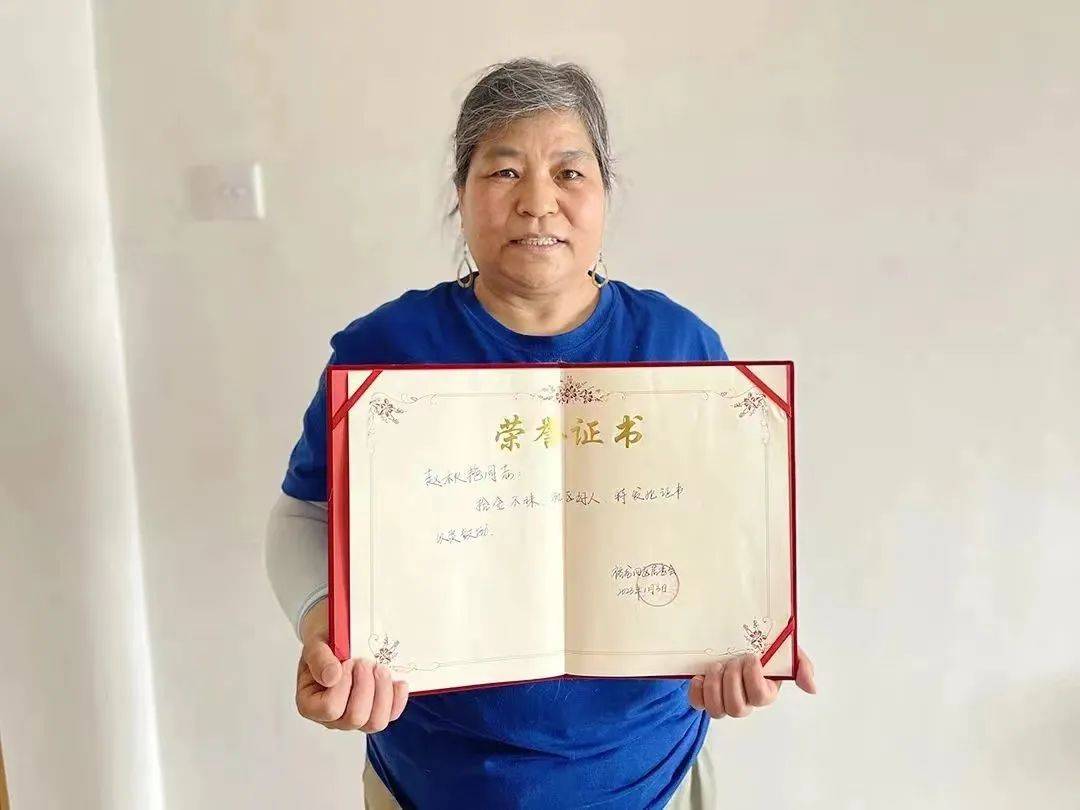 荣誉证书
赵秋艳同志：
拾金不昧、 人、特发此证书
以资鼓励.
居委会
2023年1月3日